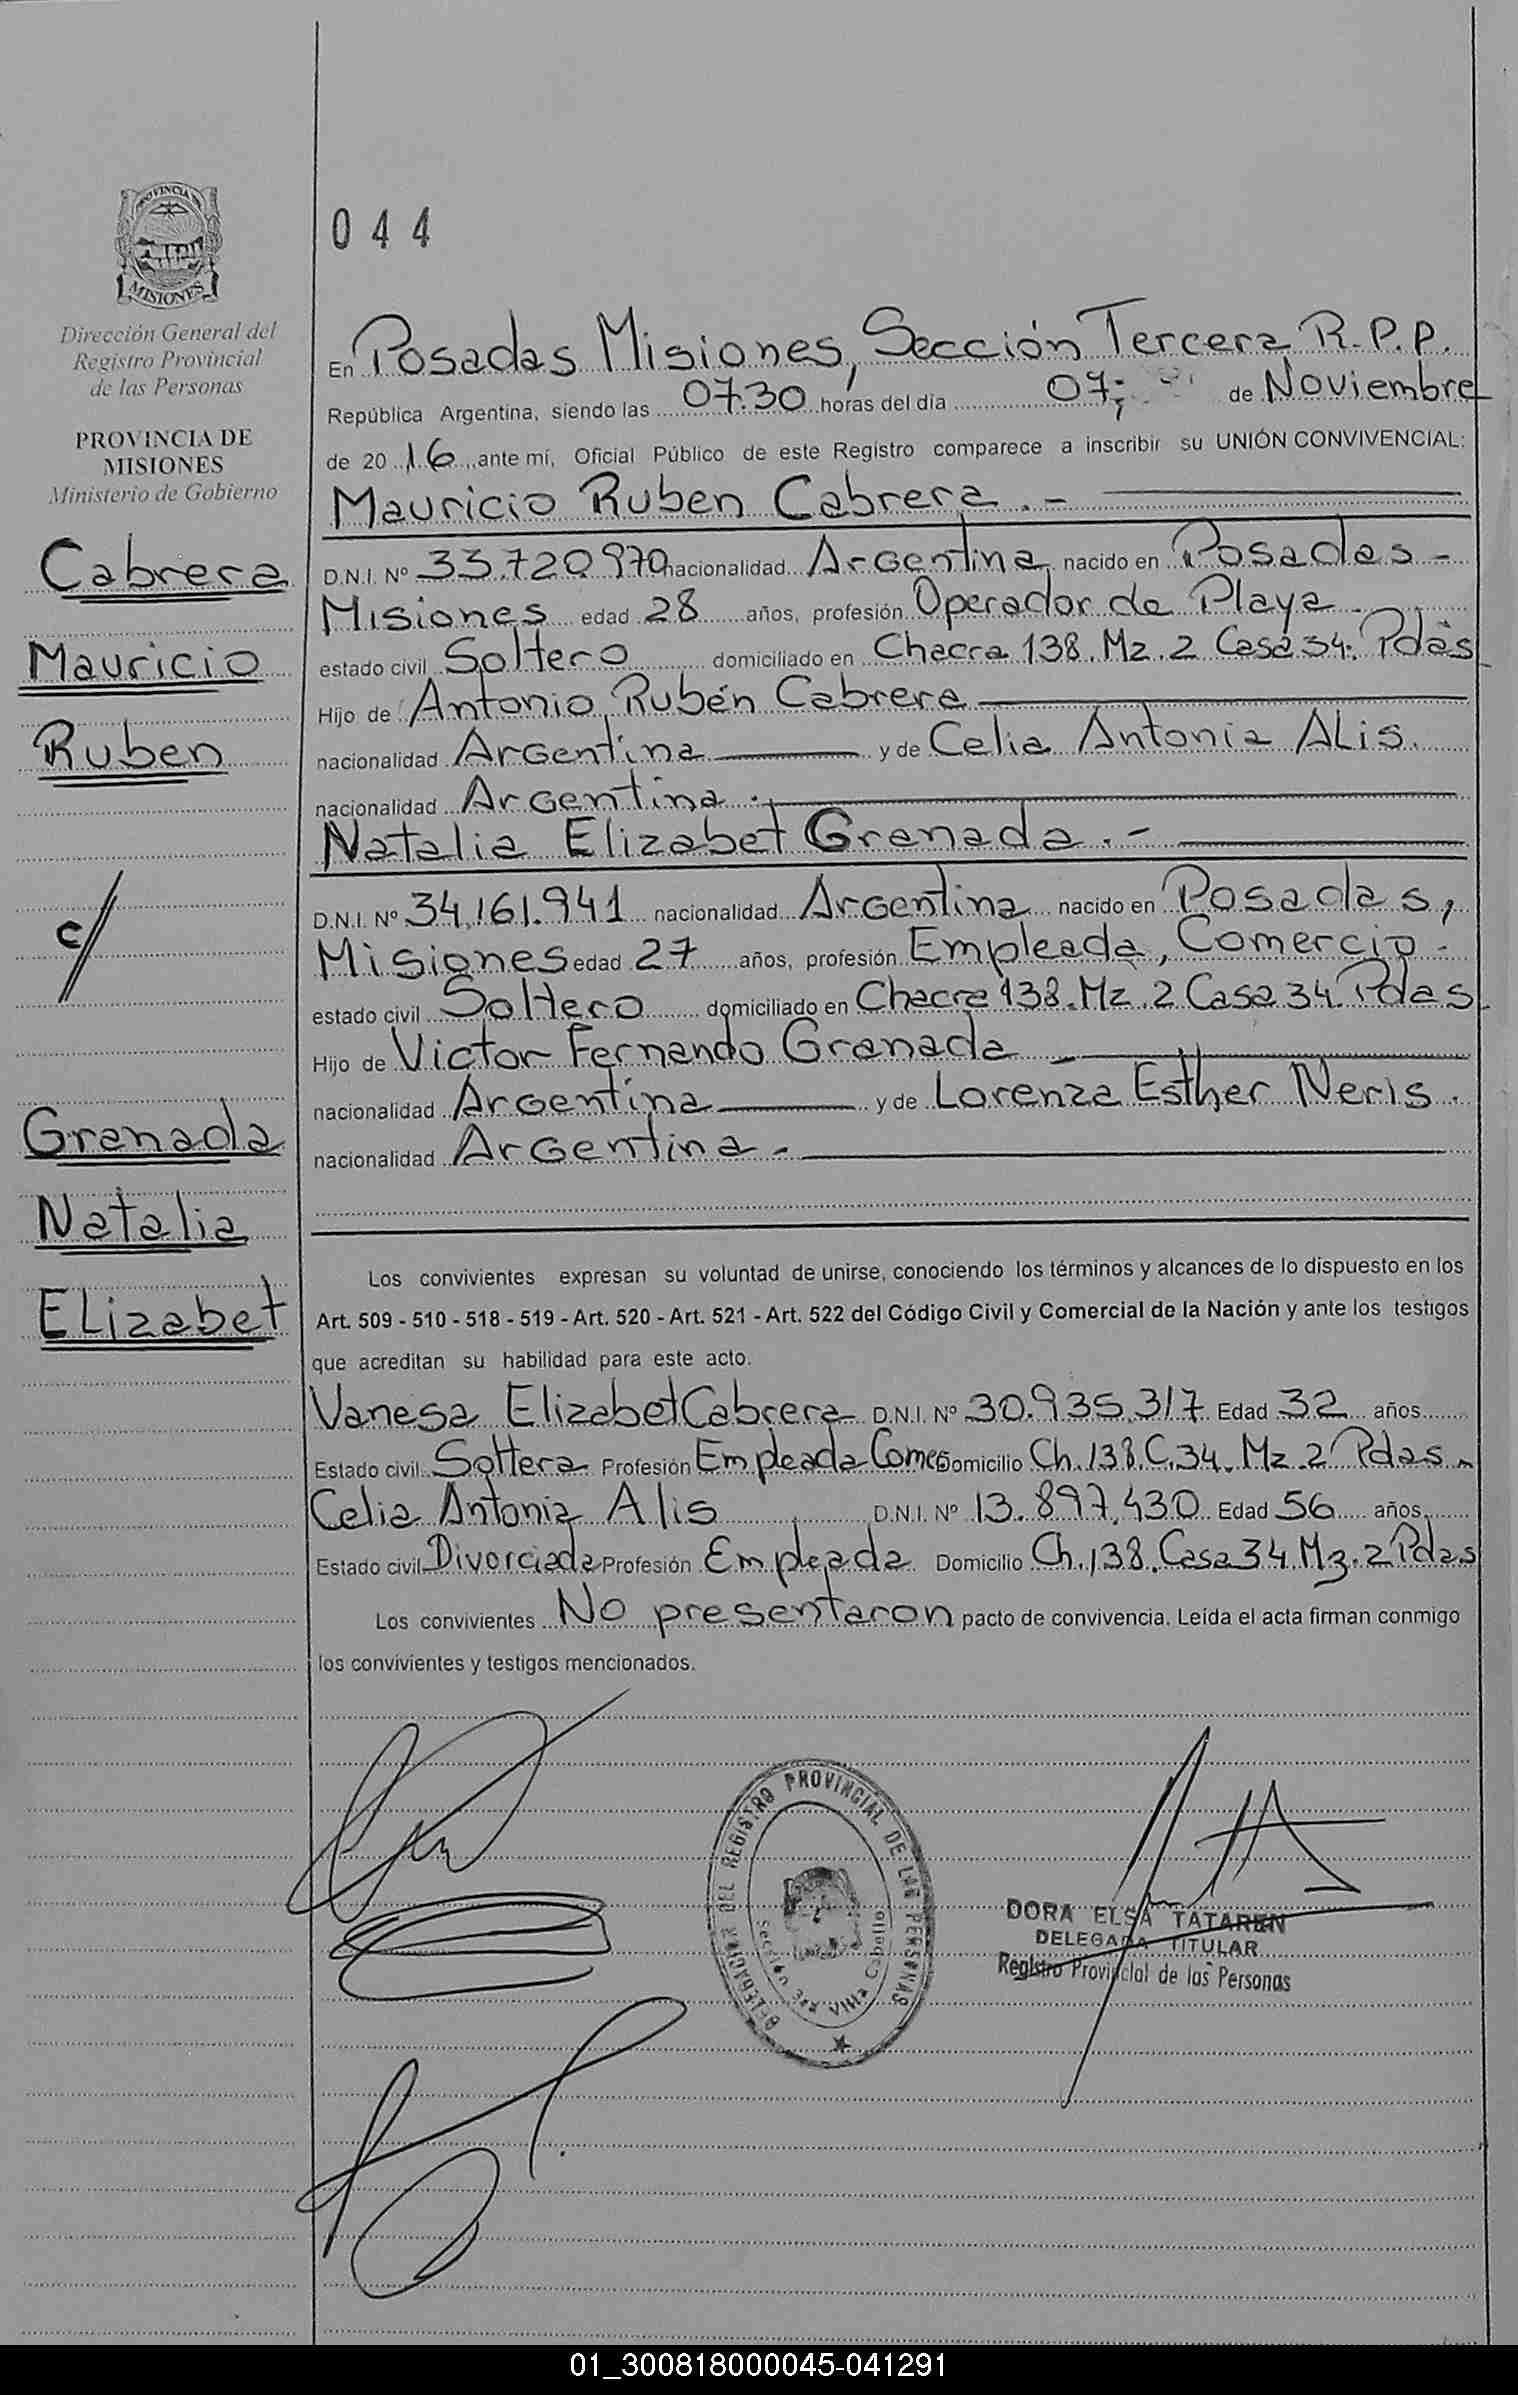 PROVINCIA DE
MISIONES
Dirección General del
Registro Provincial
de las Personas
PROVINCIA DE
MISIONES
Ministerio de Gobierno
Cabrera
Mauricio
Ruben
c/
Granada
Natalia
ELizabet
044
En Posadas Misiones, Sección Tercera R.P.P.
República Argentina, siendo las 07:30 horas del día 07; de Noviembre
de 20 16 ante mí, Oficial Público de este Registro comparece a inscribir su UNIÓN CONVIVENCIAL:
Mauricio Ruben Cabrera.-
D.N.I. Nº 33.720.970 nacionalidad Argentina nacido en Posadas-
Misiones edad 28 años, profesión Operador de Playa.
estado civil Soltero domiciliado en Chacra 138. Mz. 2 Casa 34. Pdas
Hijo de Antonio Rubén Cabrera
nacionalidad Argentina y de Celia Antonia ALis.
nacionalidad Argentina.
Natalia Elizabet Granada.-
D.N.I. Nº 34.161.941 nacionalidad Argentina nacido en Posadas,
Misiones edad 27 años, profesión Empleada, Comercio.
estado civil Soltero domiciliado en Chacra 138. Mz. 2 Casa 34. Pdas
Hijo de Victor Fernando Granada
nacionalidad Argentina y de Lorenza Esther Neris.
nacionalidad Argentina-
Los convivientes expresan su voluntad de unirse, conociendo los términos y alcances de lo dispuesto en los
Art. 509 - 510 - 518 - 519 - Art. 520 - Art. 521 - Art. 522 del Código Civil y Comercial de la Nación y ante los testigos
que acreditan su habilidad para este acto.
Vanesa Elizabet Cabrera D.N.I. Nº 30.935.317 Edad 32 años
Estado civil Soltera Profesión Empleada Comer Domicilio Ch. 138. C. 34. Mz. 2 Pdas.
Celia Antonia Alis D.N.I. Nº 13.897.430 Edad 56 años
Estado civil Divorciada Profesión Empleada Domicilio Ch. 138. Casa 34. Mz. 2 Pdas
Los convivientes No presentaron pacto de convivencia. Leída el acta firman conmigo
los convivientes y testigos mencionados.
DELEGACION DEL REGISTRO PROVINCIAL DE LAS PERSONAS
Sección 3ra Villa Cabello
DORA ELSA TATAREN
DELEGADA TITULAR
Registro Provincial de las Personas
01_300818000045-041291